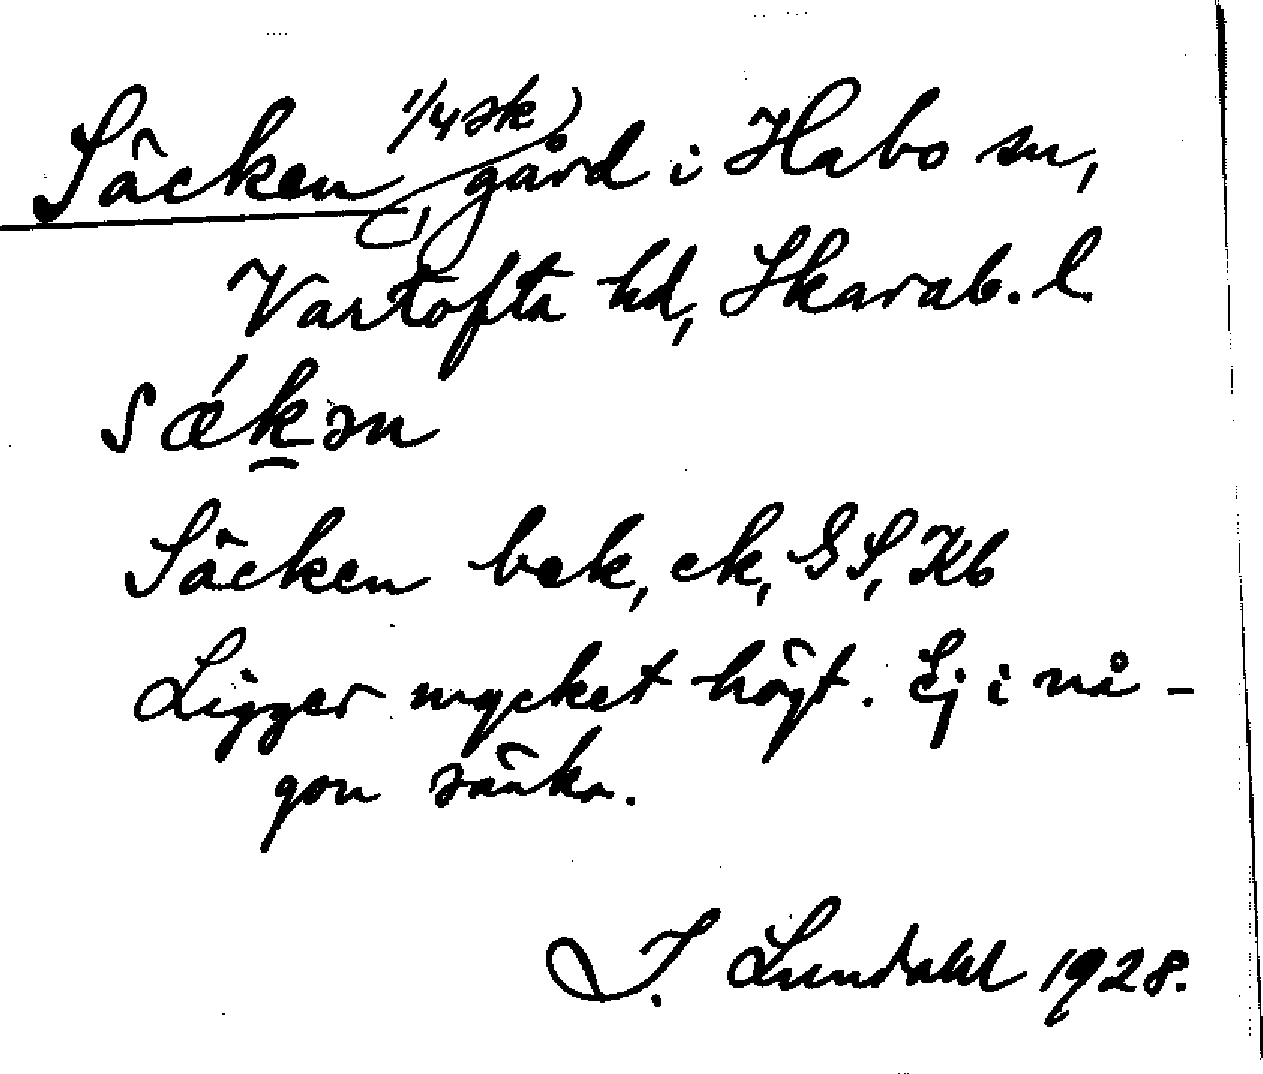 Säcken 1/4 sk gård i Habo sn,
Vartofta hd, Skarab. l.
sǽk̲ən
Säcken bek, ek, GS, Kb
Ligger mycket högt. Ej i nå-
gon sänka.
I. Lundahl 1928.